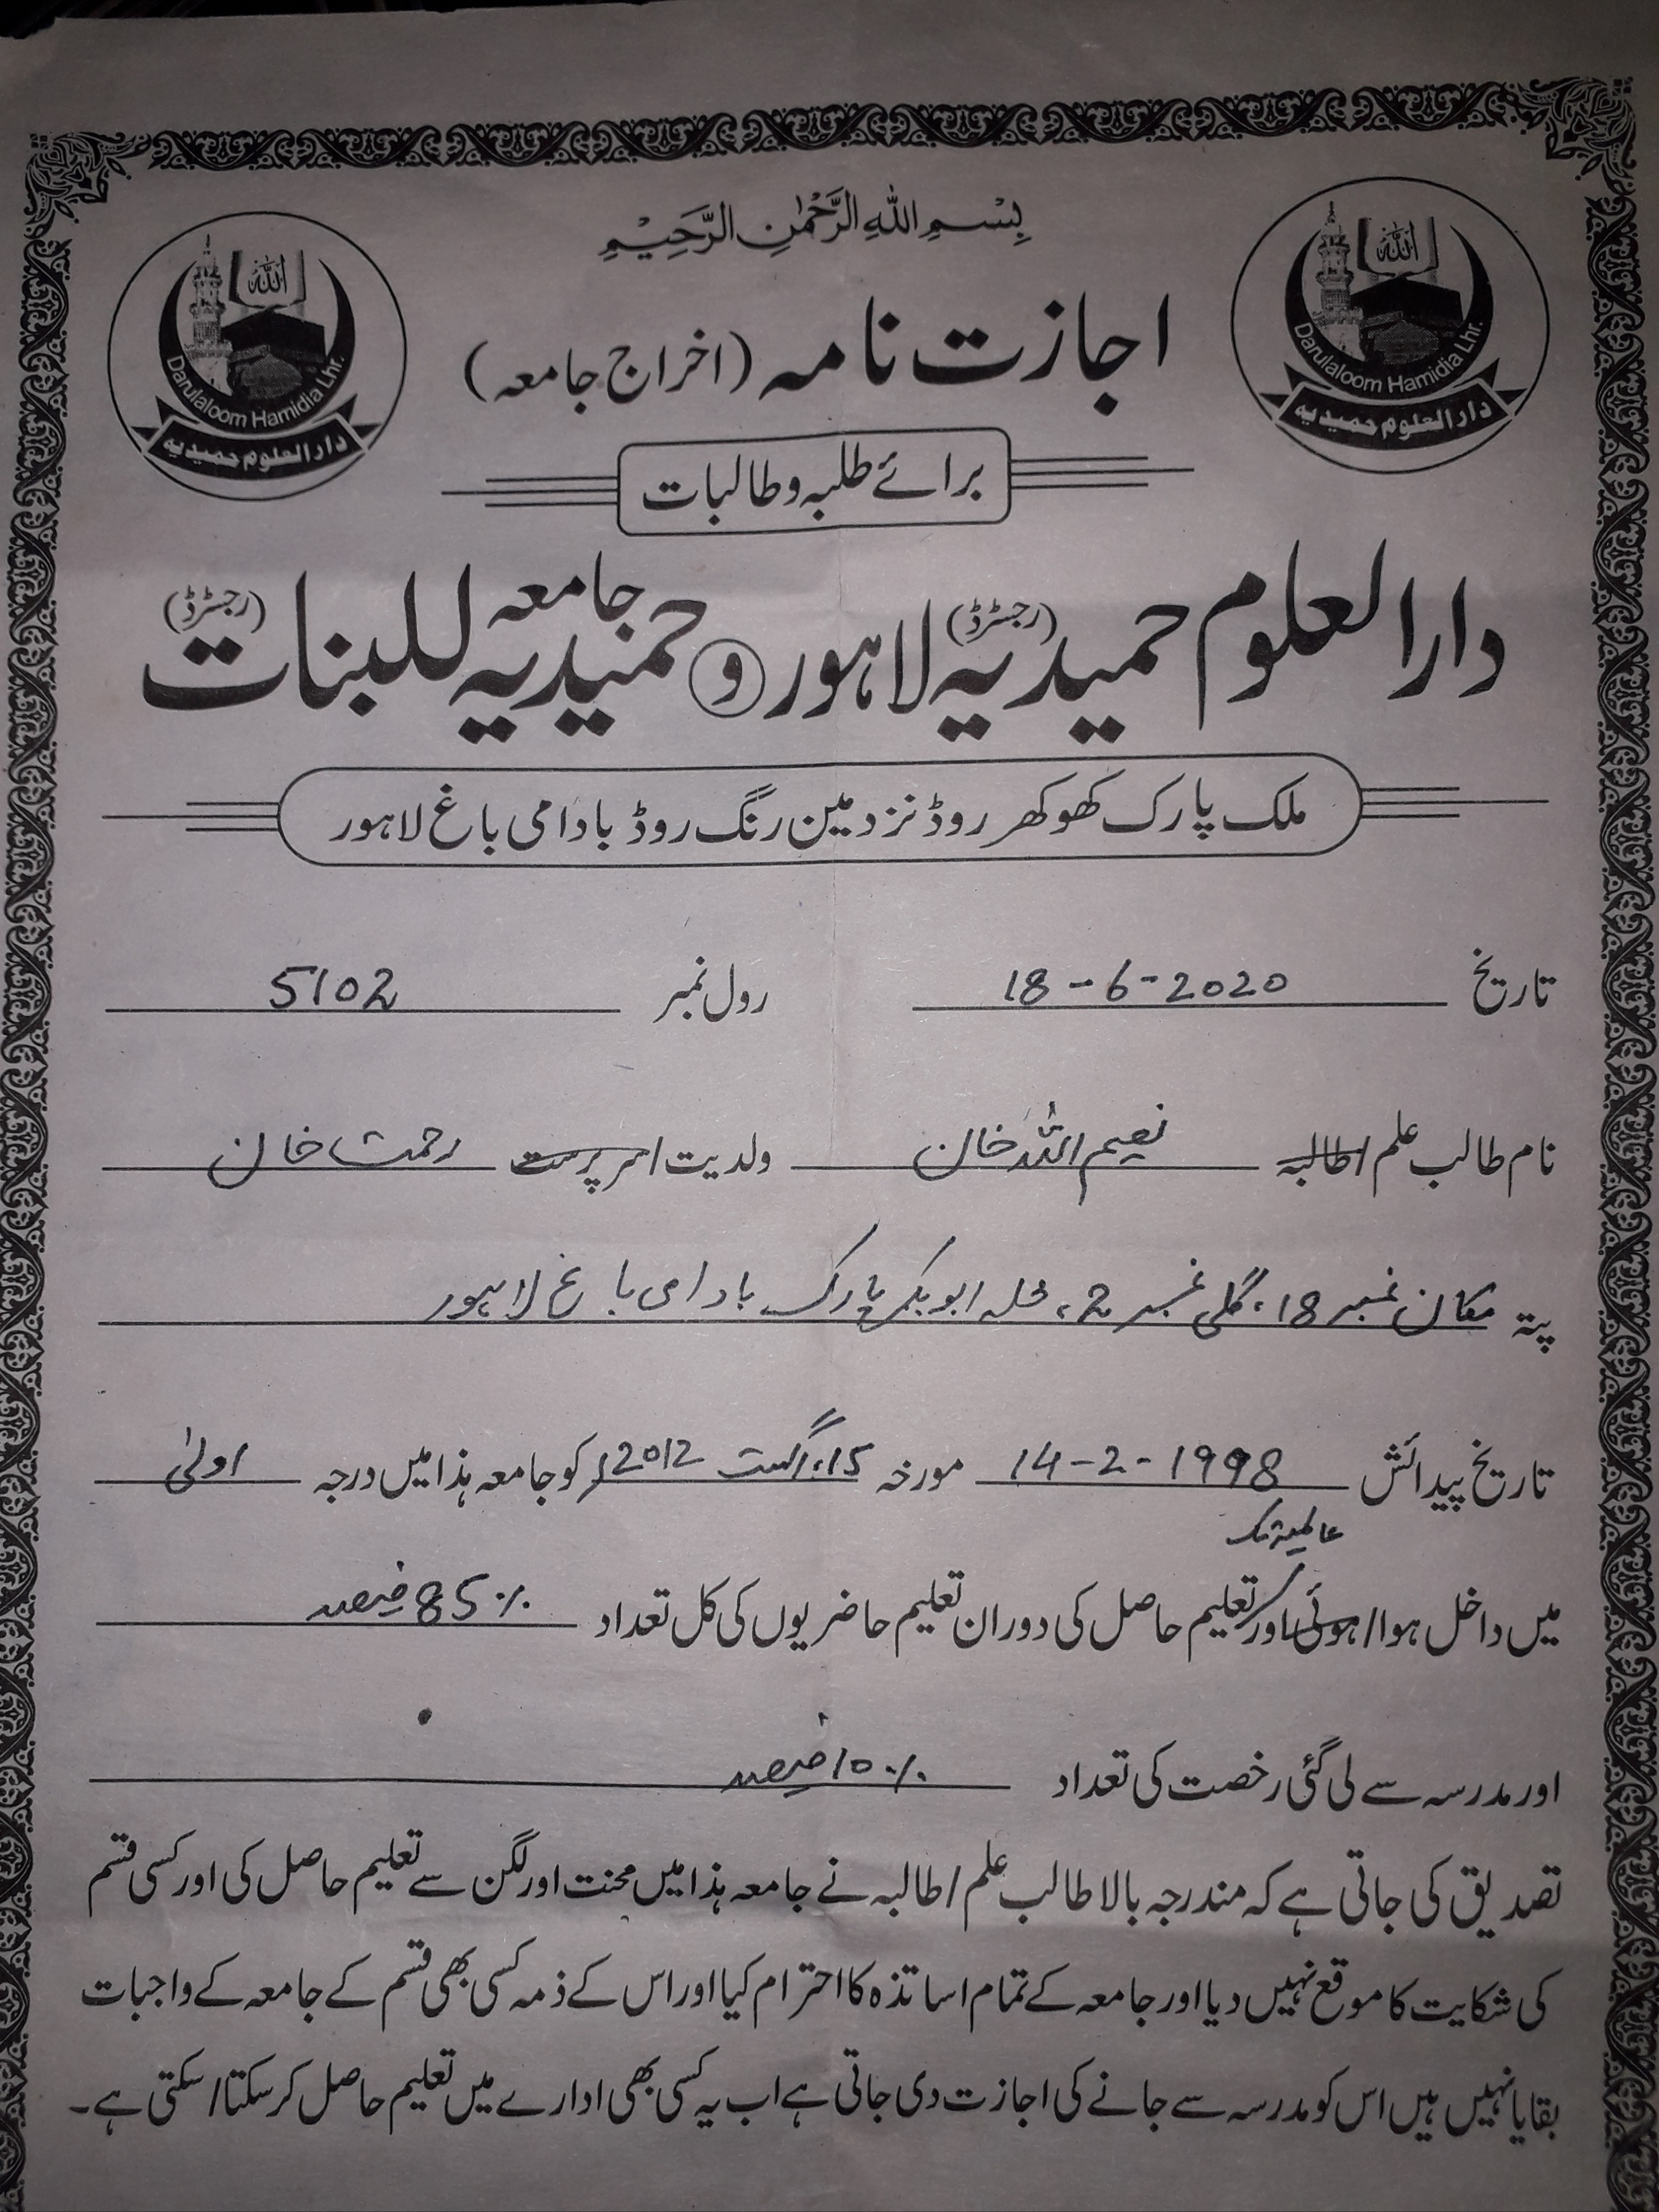 بِسْمِ اللهِ الرَّحْمٰنِ الرَّحِيْمِ
اجازت نامہ (اخراج جامعہ)
الله
Darulaloom Hamidia Lhr.
دارالعلوم حمیدیہ
الله
Darulaloom Hamidia Lhr.
دارالعلوم حمیدیہ
برائے طلبہ و طالبات
دارالعلوم حمیدیہ (رجسٹرڈ) لاہور و جامعہ حمیدیہ للبنات (رجسٹرڈ)
ملک پارک کھوکھر روڈ نزد مین رنگ روڈ بادامی باغ لاہور
تاریخ 18-6-2020 رول نمبر 5102
نام طالب علم/طالبہ نعیم اللہ خان ولدیت/سرپرست رحمت خان
پتہ مکان نمبر 18، گلی نمبر 2، محلہ ابوبکر پارک بادامی باغ لاہور
تاریخ پیدائش 14-2-1998 مورخہ 15، اگست 2012ء کو جامعہ ہذا میں درجہ اولیٰ
عالمیہ تک
میں داخل ہوا/ہوئی اور تعلیم حاصل کی دوران تعلیم حاضریوں کی کل تعداد 85% فیصد
اور مدرسہ سے لی گئی رخصت کی تعداد 10% فیصد
تصدیق کی جاتی ہے کہ مندرجہ بالا طالب علم/طالبہ نے جامعہ ہذا میں محنت اور لگن سے تعلیم حاصل کی اور کسی قسم
کی شکایت کا موقع نہیں دیا اور جامعہ کے تمام اساتذہ کا احترام کیا اور اس کے ذمہ کسی بھی قسم کے جامعہ کے واجبات
بقایا نہیں ہیں اس کو مدرسہ سے جانے کی اجازت دی جاتی ہے اب یہ کسی بھی ادارے میں تعلیم حاصل کر سکتا/سکتی ہے۔